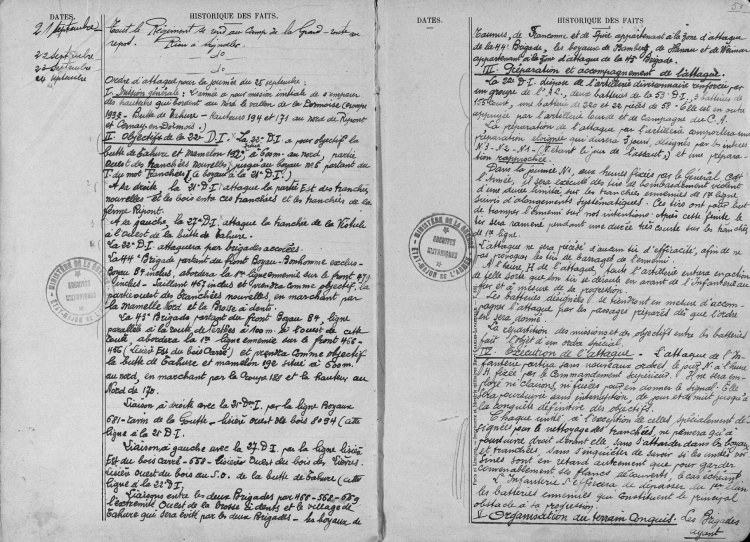 DATES.
HISTORIQUE DES FAITS.
21 septembre
Tout le Régiment se rend au Camp de la Grand-route en
repos. Rien à signaler.
22 septembre
septembre
septembre
Ordre d'attaque pour la journée du 25 septembre:
I. Mission générale: L'armée a pour mission initiale de s'emparer
des hauteurs qui bordent au Nord le vallon de la Dormoise (croupe
193 - Butte de Tahure - hauteurs 194 et 171 au Nord de Ripont
et Cernay-en-Dormois)
II. Objectifs de la 22e D.I. La 22e D.I. a pour objectif la
butte de Tahure et mamelon 192, à 500m au nord, partie
ouest des tranchées nouvelles, jusqu'au boyau n° 5 partant du
T du mot Tranchées (ce boyau à la 21e D.I.)
A sa droite, la 21e D.I. attaque la partie Est des tranchées
nouvelles et le bois entre ces tranchées et les tranchées de la
ferme Ripont.
A sa gauche, la 27e D.I. attaque la tranchée de la Vistule
à l'ouest de la butte de Tahure.
La 22e D.I. attaquera par brigades accolées.
La 44e Brigade partant du front Boyau Bonhomme exclus-
Boyau 89 inclus, abordera la 1ère ligne ennemie sur le front
inclus - saillant 467 inclus et prendra comme objectif, la
partie ouest des tranchées nouvelles, en marchant par
la mamelle Nord et la Brosse à dents.
La 43e Brigade partant du front Boyau 89, ligne
parallèle à la route de Perthes à 100m. à l'ouest de cette
route, abordera la 1ère ligne ennemie sur le front 456-
466 (lisière Est du bois Carré) et prendra comme objectif
la butte de Tahure et mamelon 192 situé à 500m.
au nord, en marchant par la croupe 188 et la hauteur au
Nord de 170.
Liaison à droite avec la 21e D.I. par la ligne Boyaux
681 - corne de la Goutte - lisière ouest des bois 8094 (cette
ligne à la 21e D.I.
Liaison à gauche avec la 27e D.I. par la ligne lisière
Est du bois Carré - 550 - lisière Ouest du bois des Lièvres -
lisière ouest du bois au S.O. de la butte de Tahure (cette
ligne à la 22e D.I.
Liaisons entre les deux Brigades par 466 - 562 - 669
l'extrémité Ouest de la brosse à dents et le village de
Tahure qui sera évité par les deux Brigades - les boyaux de
DATES.
HISTORIQUE DES FAITS.
Taunus, de Franconie et de Spire appartenant à la zone d'attaque
de la 44e Brigade, les boyaux de Hamberg, de Hanau et de Weimar
appartenant à la zone d'attaque de la 43e Brigade.
III. Préparation et accompagnement de l'attaque.
La 22e D.I. dispose de l'artillerie divisionnaire renforcée par
un groupe de l'A.L., deux batteries de la 53e D.I. 3 batteries de
155 court, une batterie de 220 et 22 pièces de 58. Elle est en outre
appuyée par l'artillerie lourde et de campagne du C.A.
La préparation de l'attaque par l'artillerie comportera une
préparation éloignée qui durera 3 jours, désignés par les indices
N-3 - N-2 - N-1 - (N étant le jour de l'assaut) et une prépara-
tion rapprochée.
Dans la journée N-1, aux heures fixées par le Général Cdt
l'Armée, il sera exécuté des tirs de bombardement violent
d'une durée limitée sur les tranchées ennemies de 1ère ligne
suivis d'allongements systématiques. Ces tirs ont pour but
de tromper l'ennemi sur nos intentions. Après cette feinte le
tir sera ramené pendant une durée très courte sur les tranchées
de 1ère ligne.
L'attaque ne sera précédée d'aucun tir d'efficacité, afin de ne
pas provoquer les tirs de barrage de l'ennemi.
A l'heure H de l'attaque, toute l'artillerie entrera en action
de telle sorte que son tir se déroule en avant de l'Infanterie au
fur et à mesure de sa progression.
Les batteries désignées se tiendront en mesure d'accom-
pagner l'attaque par les passages préparés dès que l'ordre
en sera donné.
La répartition des missions et des objectifs entre les batteries
fait l'objet d'un ordre spécial.
IV. Exécution de l'attaque - L'attaque de l'In-
fanterie partira sans nouveaux ordres le jour N à l'heure
H fixée par le commandement supérieur. Il ne sera em-
ployé ni clairons, ni fusées pour en donner le signal. Elle
sera poursuivie sans interruption, de jour et de nuit jusqu'à
la conquête définitive des objectifs.
Chaque unité à l'exception de celles spécialement dé-
signées pour le nettoyage des tranchées, ne pensera qu'à
poursuivre droit devant elle sans s'attarder dans les boyaux
et tranchées, sans s'inquiéter de savoir si les unités voi-
sines sont en retard autrement que pour garder
convenablement les flancs découverts, le cas échéant.
L'Infanterie s'efforcera de dépasser du 1er élan
les batteries ennemies qui constituent le principal
obstacle à sa progression.
V. Organisation du terrain conquis. Les Brigades
ayant
MINISTÈRE DE LA GUERRE
ARCHIVES
HISTORIQUES
MINISTÈRE DE LA GUERRE
ARCHIVES
HISTORIQUES